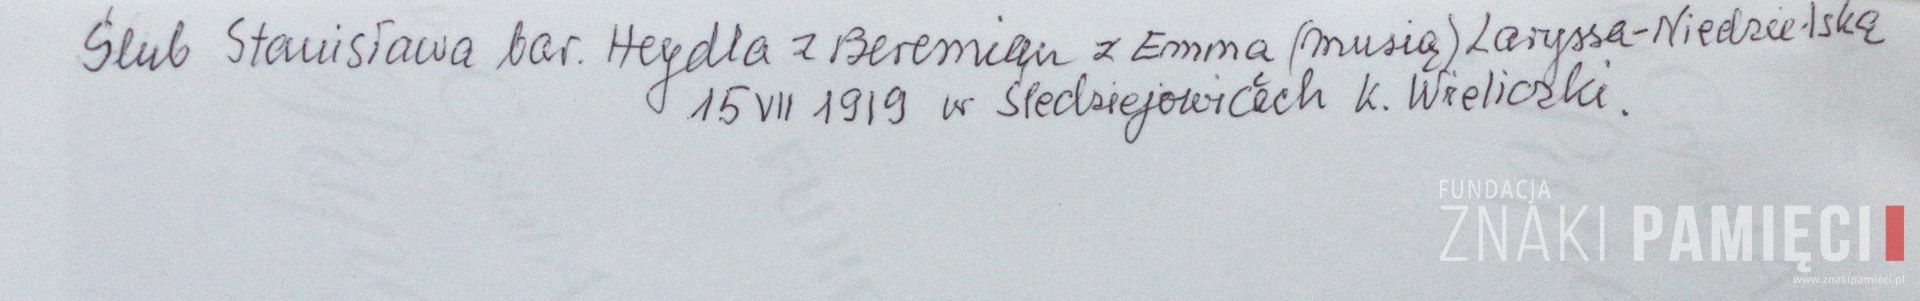 Ślub Stanisława bar. Heydla z Beremian z Emma (Musią) Laryssa-Niedzielską
15 VII 1919 w Śledziejowicach k. Wieliczki.
FUNDACJA
ZNAKI PAMIĘCI
www.znakipamieci.pl